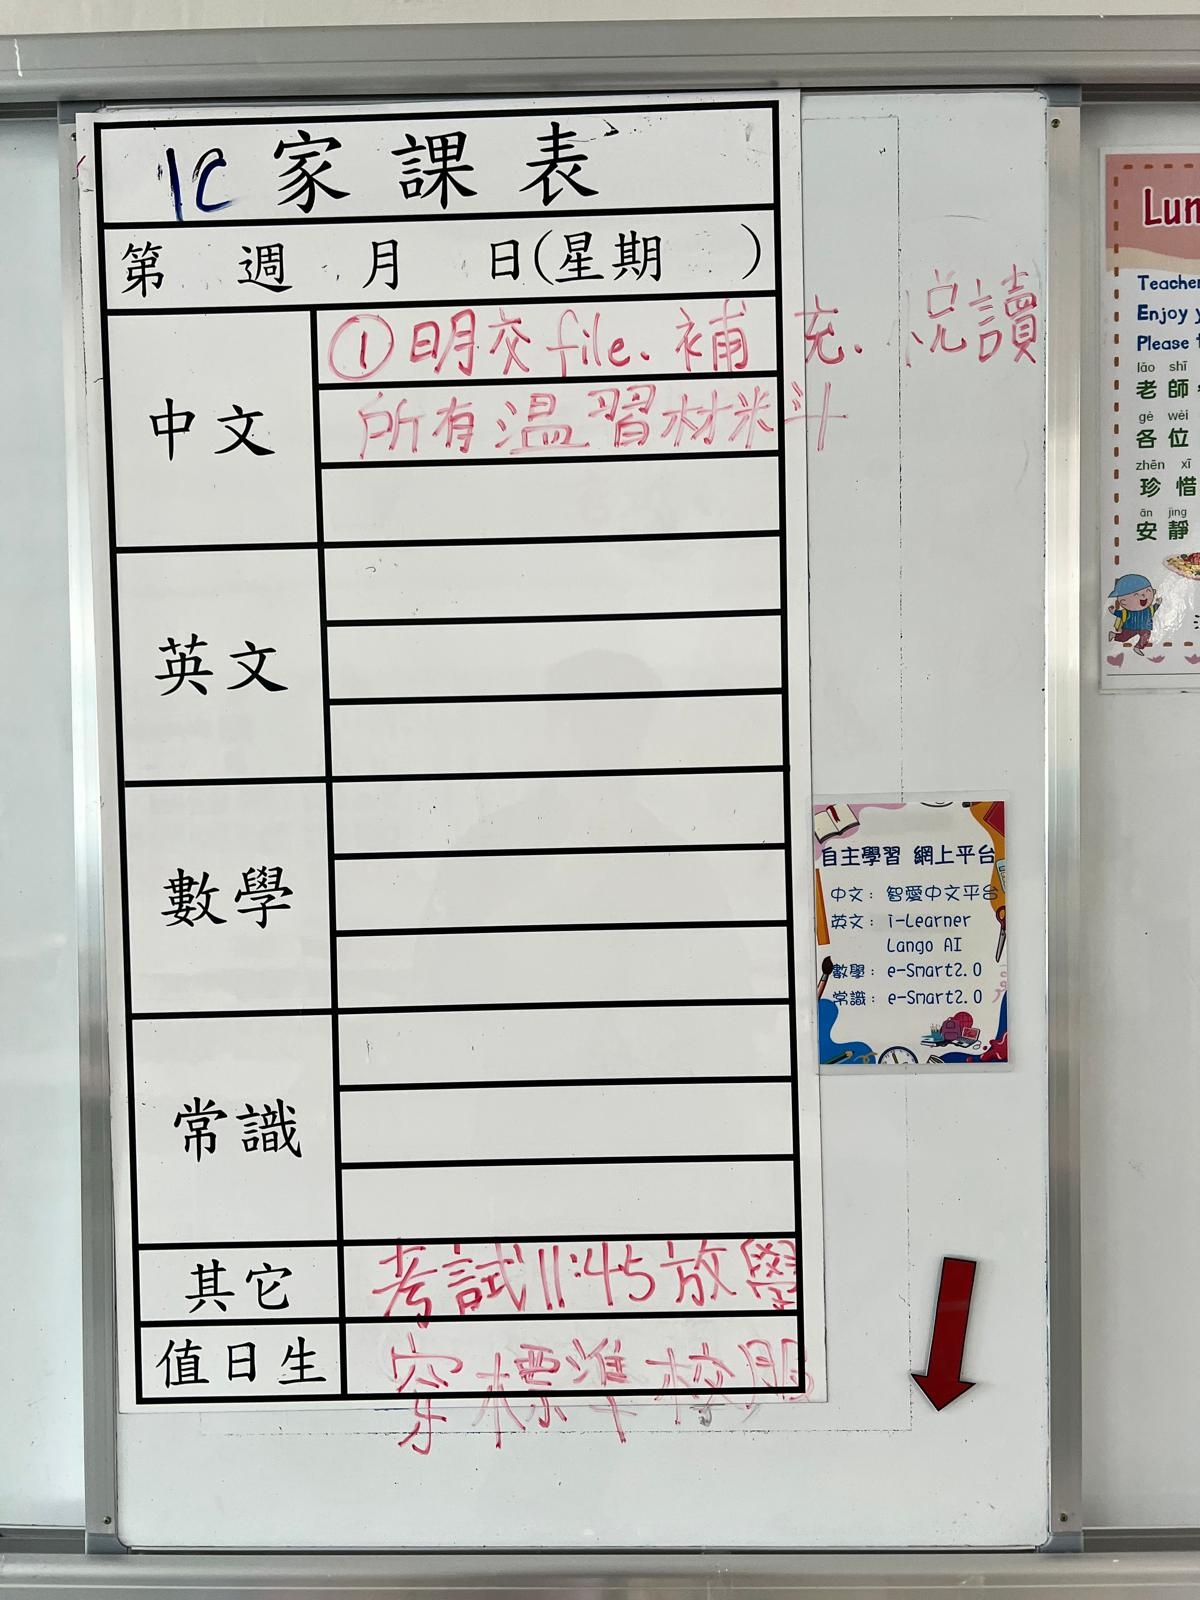 1C 家課表
第 週 月 日(星期 )
中文
①明交 file. 補充. 悦讀
所有温習材料
英文
數學
常識
其它
考試11:45放學
值日生
穿標準校服
自主學習 網上平台
中文: 智愛中文平台
英文: i-Learner
Lango AI
數學: e-Smart2.0
常識: e-Smart2.0
Lun
Teacher
Enjoy y
Please t
lǎo shī
老師
gè wèi
各位
zhēn xī
珍惜
ān jìng
安靜